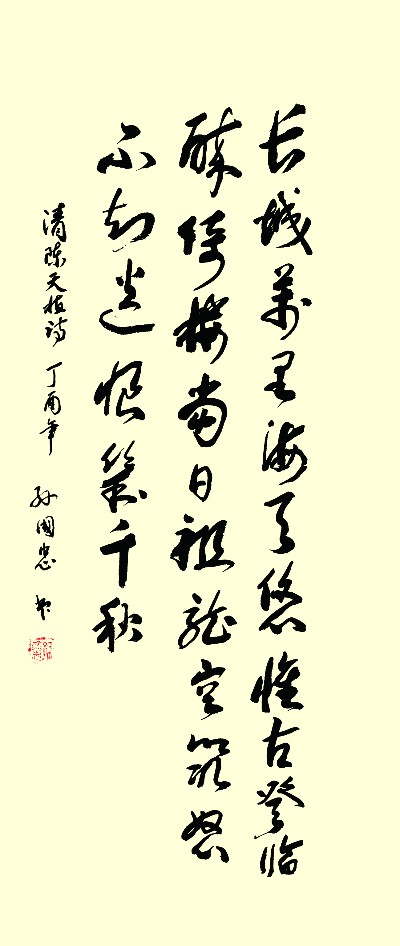 长城萬里海天悠懷古登临
醉倚楼当日祖龙空筑怨
不知遗恨幾千秋
清陈天植诗 丁酉年 孙國忠 书